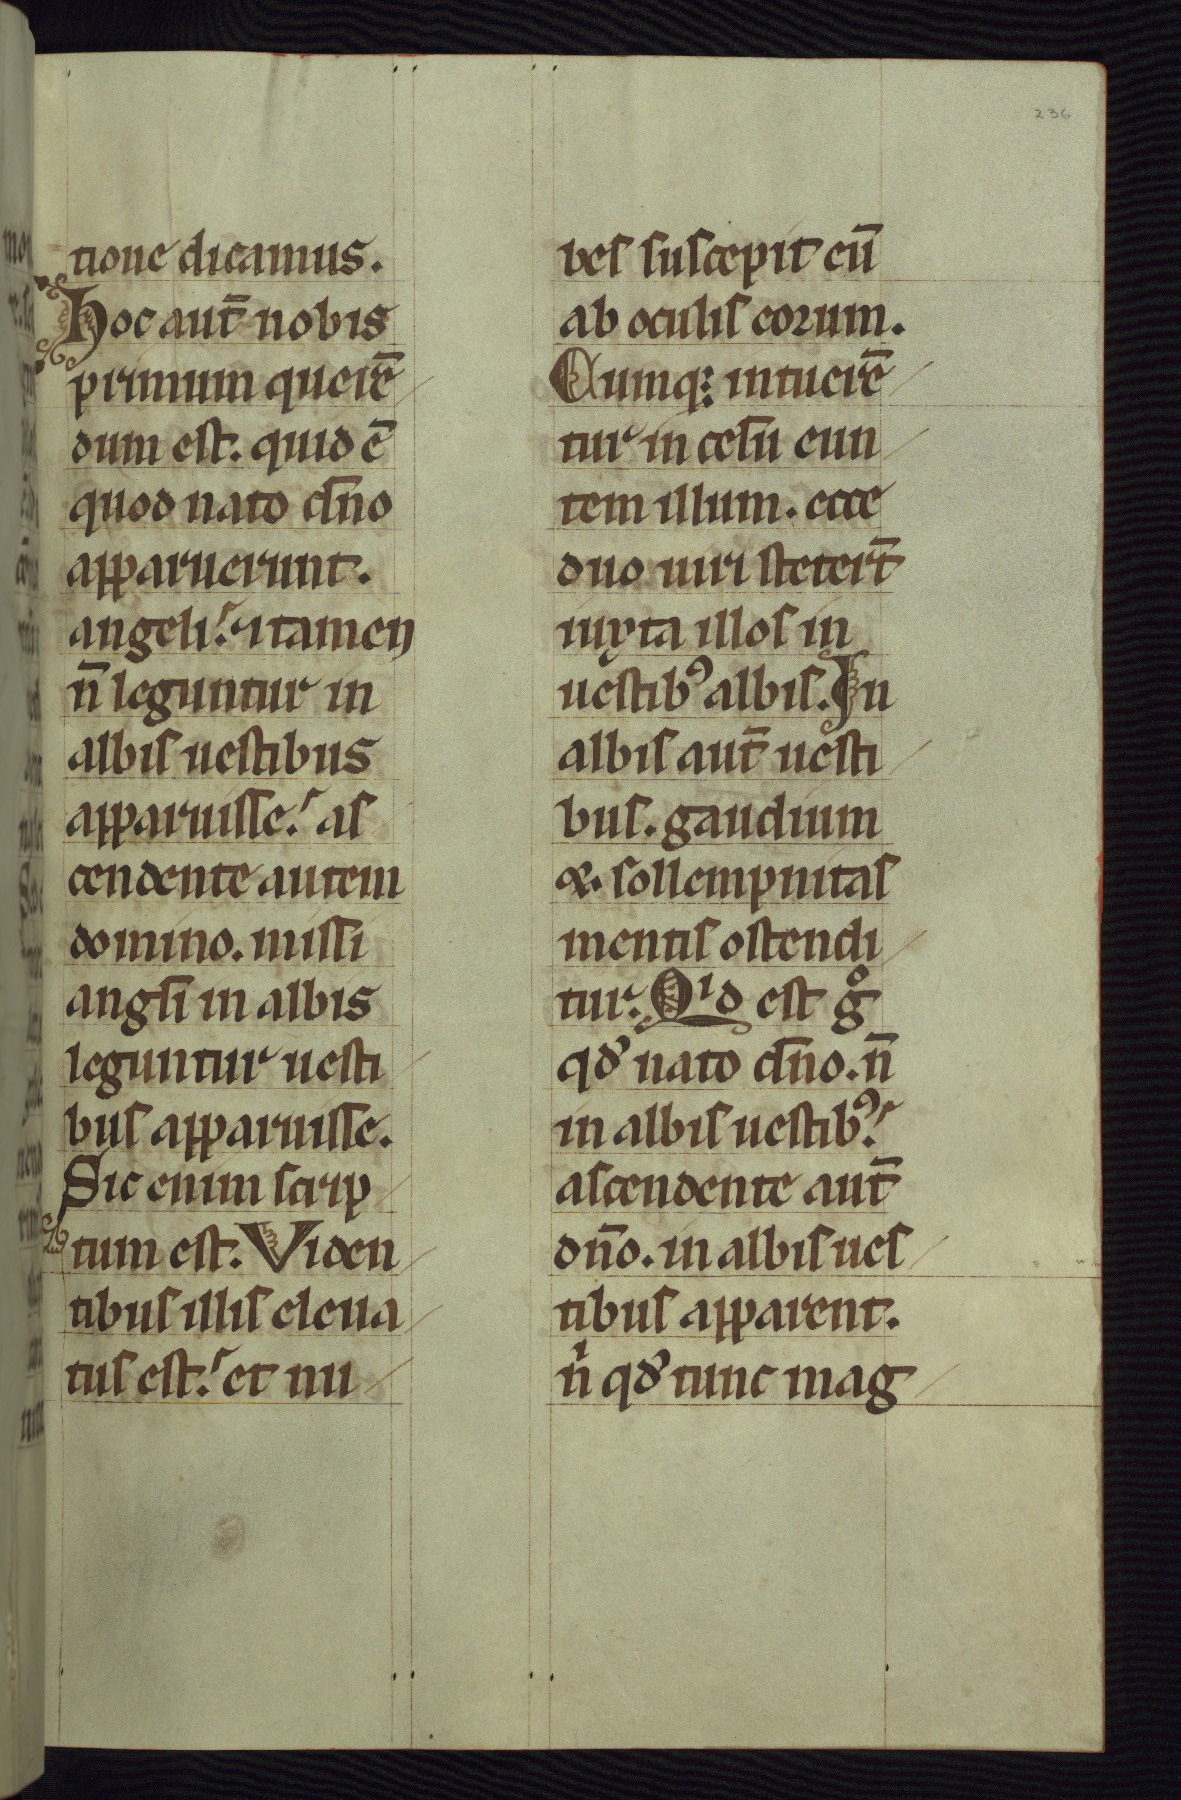 236
tione dicamus.
Hoc aut̄ nobis
primum querē
dum est. quid ē
quod nato dn̄o
apparuerunt.
angeli. ⁊ tamen
n̄ leguntur in
albis uestibus
apparuisse. as
cendente autem
domino. missi
angl̄i in albis
leguntur uesti
bus apparuisse.
Sic enim scrip
tum est. Viden
tibus illis eleua
tus est. et nu
bes suscepit eū
ab oculis eorum.
Cumq; intuerē
tur in celū eun
tem illum. ecce
duo uiri steter̄t
iuxta illos in
uestibꝰ albis. In
albis aut̄ uesti
bus. gaudium
&. sollempnitas
mentis ostendi
tur. Qͥd est gͦ
qd’ nato dn̄o. n̄
in albis uestibꝰ.
ascendente aut̄
dn̄o. in albis ues
tibus apparent.
nͥ qd’ tunc mag